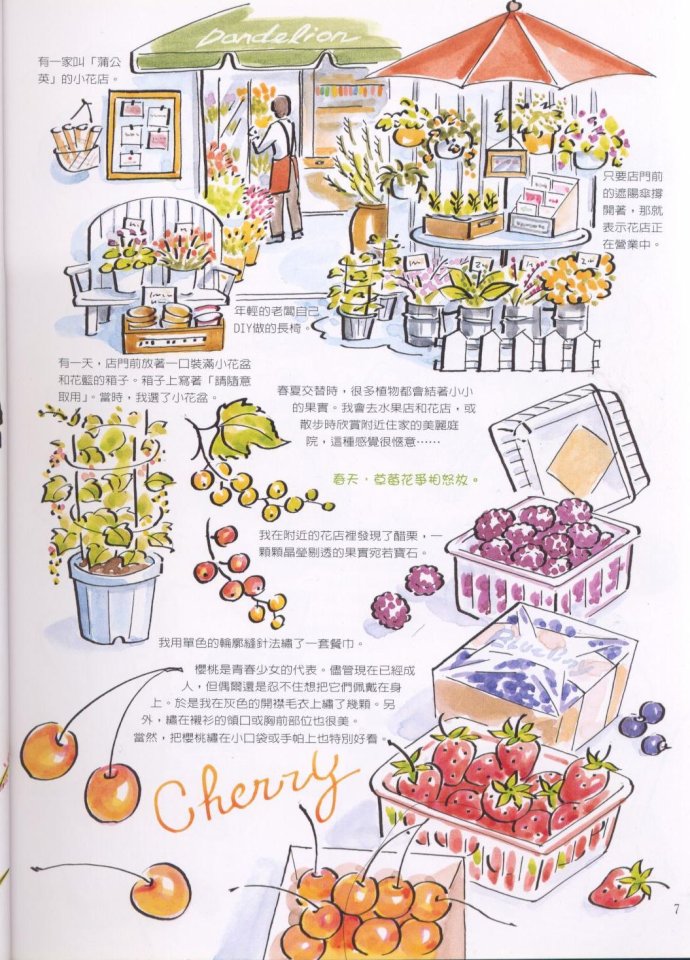 Dandelion
有一家叫「蒲公
英」的小花店。
只要店門前
的遮陽傘撐
開著，那就
表示花店正
在營業中。
年輕的老闆自己
DIY做的長椅。
有一天，店門前放著一口裝滿小花盆
和花籃的箱子。箱子上寫著「請隨意
取用」。當時，我選了小花盆。
春夏交替時，很多植物都會結著小小
的果實。我會去水果店和花店，或
散步時欣賞附近住家的美麗庭
院，這種感覺很愜意……
春天，草莓花爭相怒放。
我在附近的花店裡發現了醋栗，一
顆顆晶瑩剔透的果實宛若寶石。
我用單色的輪廓縫針法繡了一套餐巾。
櫻桃是青春少女的代表。儘管現在已經成
人，但偶爾還是忍不住想把它們佩戴在身
上。於是我在灰色的開襟毛衣上繡了幾顆。另
外，繡在襯衫的領口或胸前部位也很美。
當然，把櫻桃繡在小口袋或手帕上也特別好看。
Cherry
7